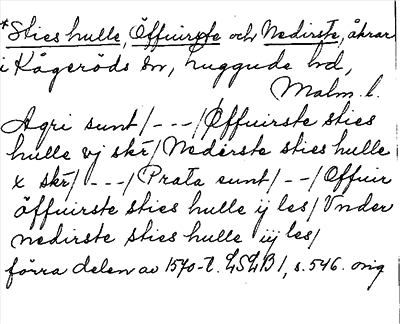 *Sties hulle, Öffuirste och Nedirste, åkrar
i Kågeröds sn, Luggude hd,
Malm. l.
Agri sunt/---/Øffuirste sties
hulle vj skr/Nederste sties hulle
x skr/---/Prata sunt/--/Offuir
öffuirste sties hulle ij les/Vnder
nedirste sties hulle iij les/
förra delen av 1570-t. LSLB 1, s. 546. orig